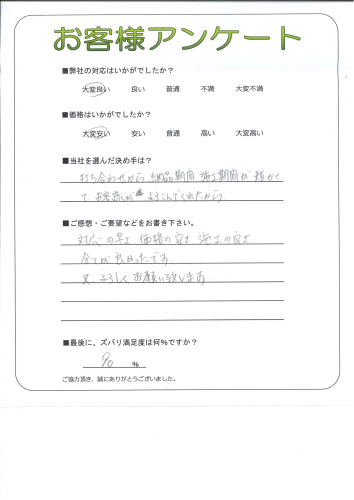 お客様アンケート
■弊社の対応はいかがでしたか？
大変良い 良い 普通 不満 大変不満
■価格はいかがでしたか？
大変安い 安い 普通 高い 大変高い
■当社を選んだ決め手は？
打ち合わせから 納品期間 施工期間が短かく
て お客様が よろこんでくれたから
■ご感想・ご要望などをお書き下さい。
対応の早さ 価格の良さ 施工の良さ
全てが良かったです
又、よろしくお願い致します
■最後に、ズバリ満足度は何%ですか？
90 %
ご協力頂き、誠にありがとうございました。